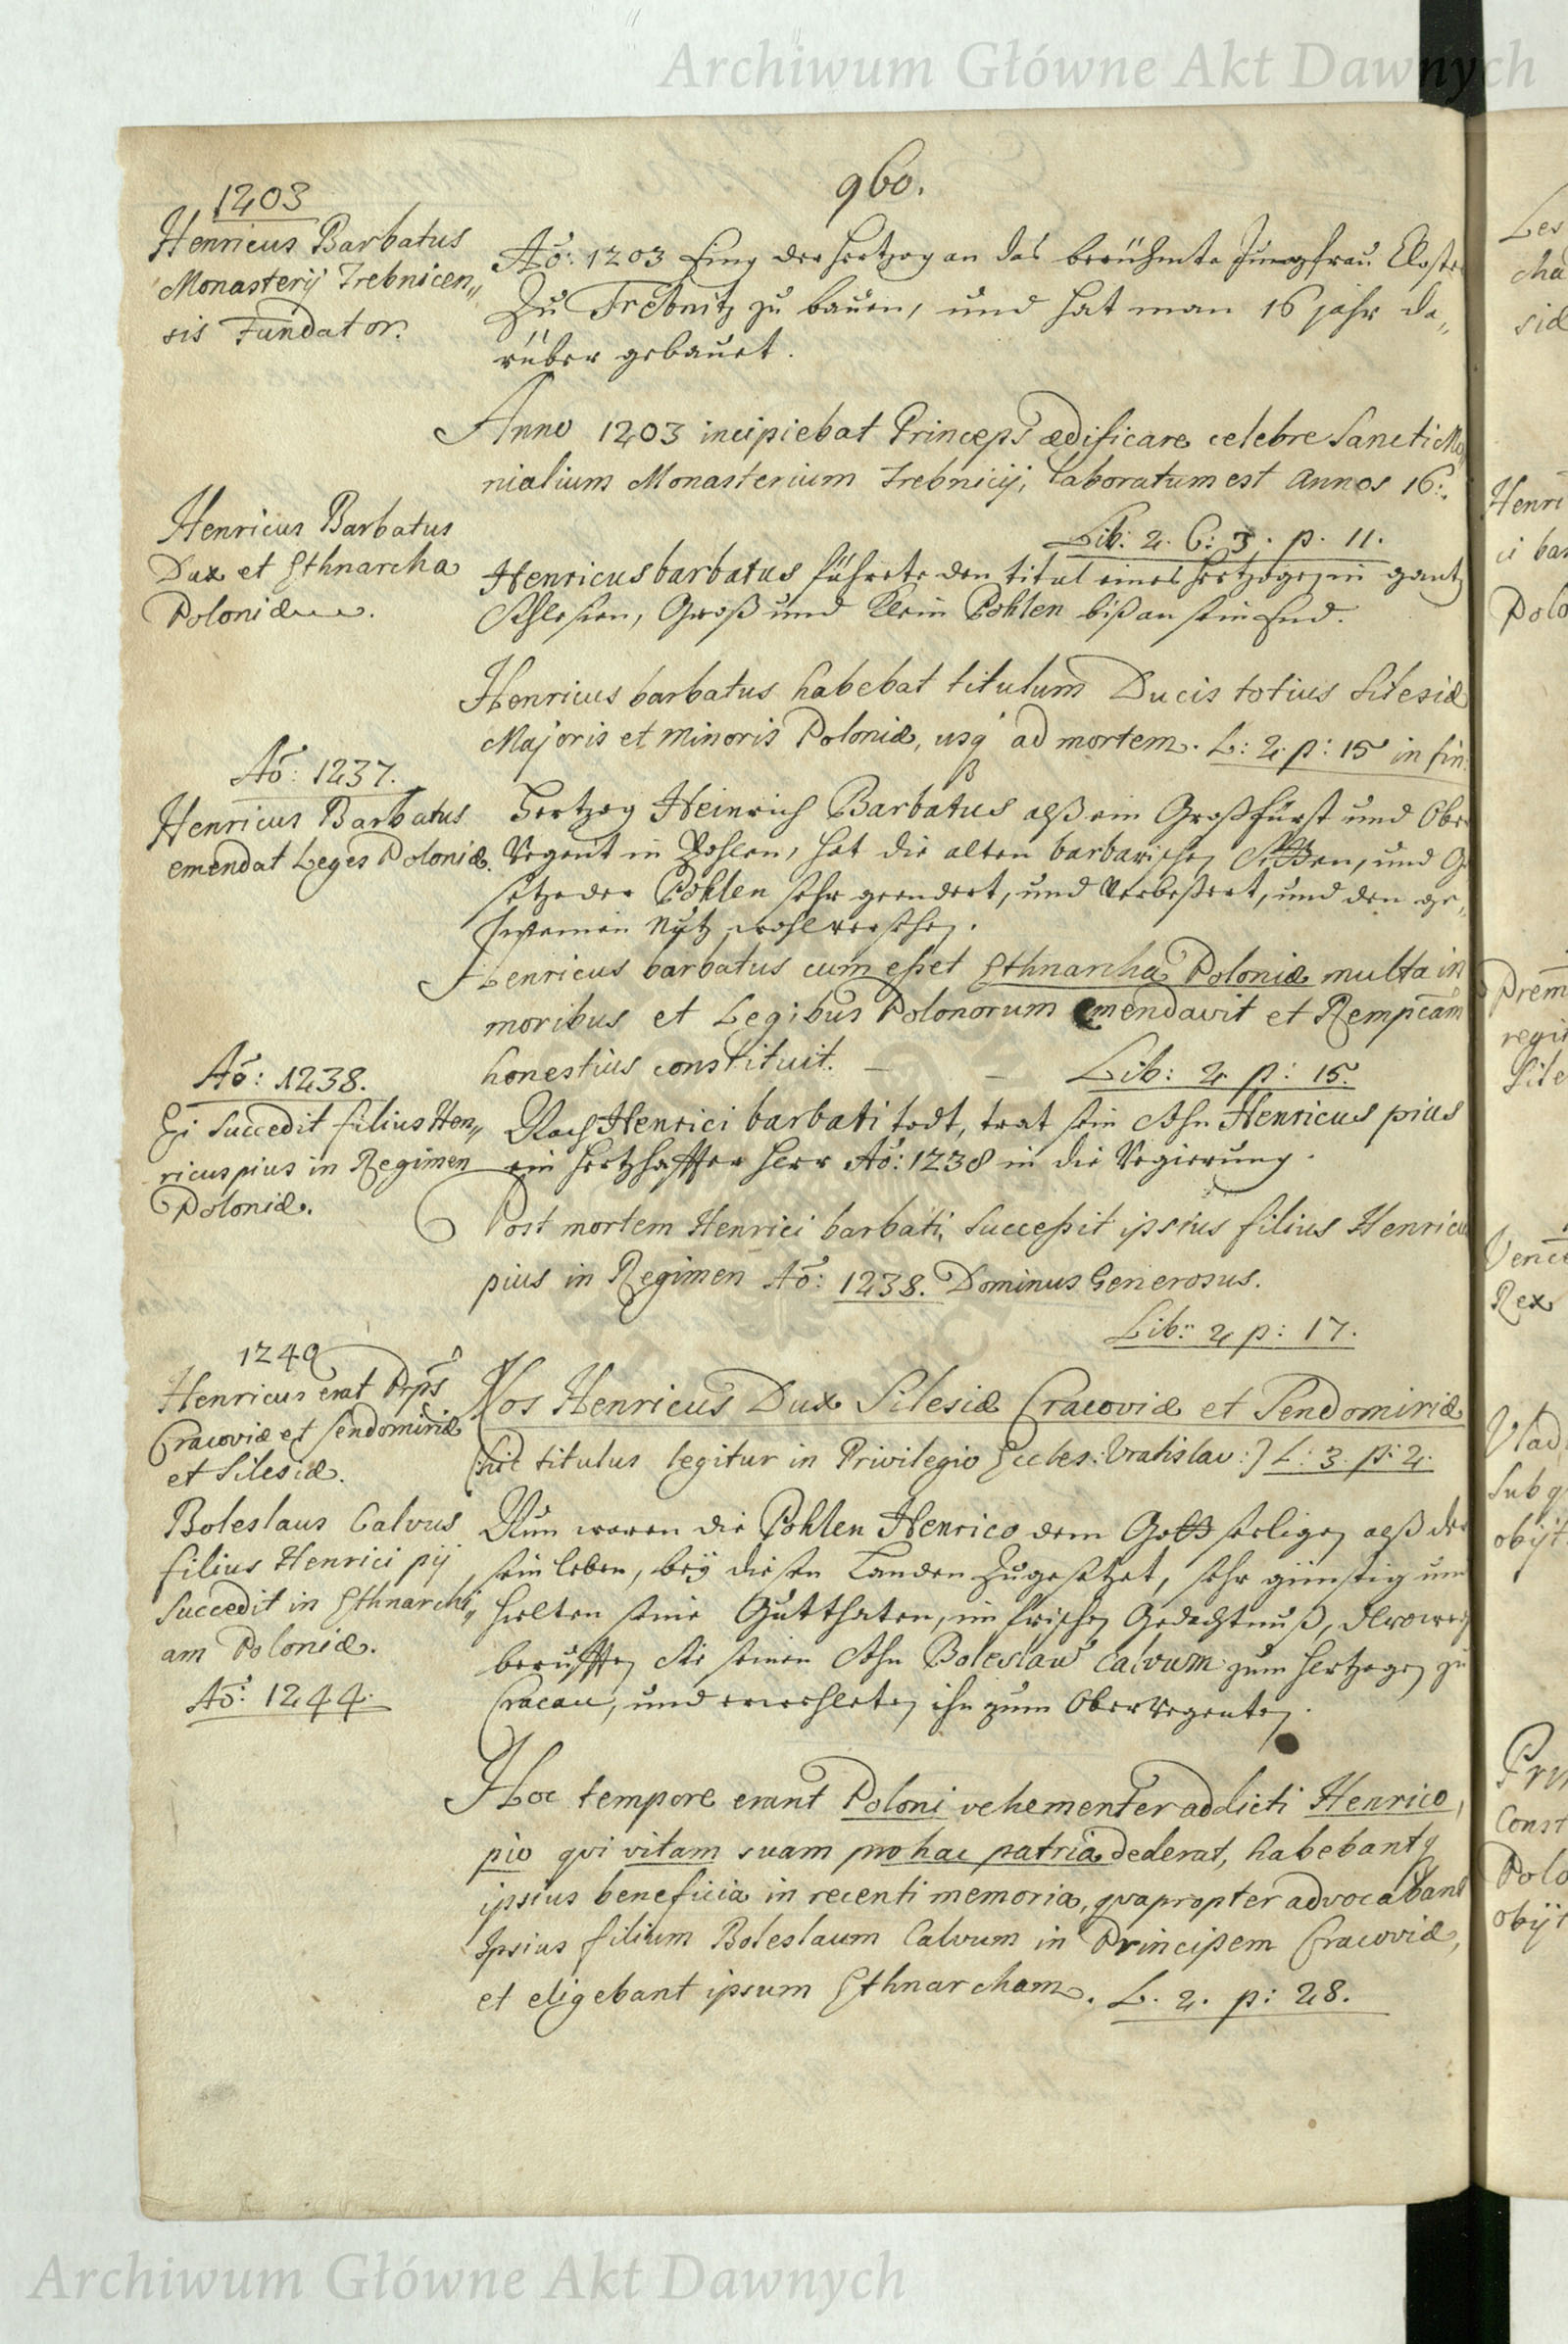 Archiwum Główne Akt Dawnych
960.
1203
Henricus Barbatus
Monasterij Trebnicen„
sis Fundator.
Aõ: 1203 fing der Hertzog an das berühmte Jungfrau Closter
Zu Trebnitz zu bauen, und hat man 16 jahr da„
rüber gebauet.
Anno 1203 incipiebat Princeps ædificare celebre Sancti Mo„
nialium Monasterium Trebnicij, laboratum est annos 16.
Lib: 2. C: 3. p. 11.
Henricus Barbatus
Dux et Ethnarcha
Poloniæ.
Henricus barbatus führete den titul eines Hertzogen in gantz
Schlesien, Groß und Klein Pohlen biß an sein End.
Henricus barbatus habebat titulum Ducis totius Silesiæ
Majoris et minoris Poloniæ, usq ad mortem. L: 2. p: 15 in fin:
Aõ: 1237.
Henricus Barbatus
emendat Leges Poloniæ.
Hertzog Heinrich Barbatus alß ein Großfürst und Ober
Regent in Pohlen, hat die alten barbarischen Sitten, und Ge
setze der Pohlen sehr geendert, und Verbeßert, und den ge„
meinen Nutz wohl versehen.
Henricus barbatus cum eßet Ethnarcha Poloniæ multa in
moribus et Legibus Polonorum emendavit et Rempcam
honestius constituit. – – Lib: 2 p: 15.
Aõ: 1238.
Ei Succedit filius Hen„
ricus pius in Regimen
Poloniæ.
Nach Henrici barbati todt, trat sein Sohn Henricus pius
ein Hertzhaffter Herr Aõ: 1238 in die Regierung.
Post mortem Henrici barbati, Succeßit ipsius filius Henricus
pius in Regimen Aõ: 1238. Dominus Generosus.
Lib: 2 p: 17.
1240
Henricus erat Prps
Cracoviæ et Sendomiriæ
et Silesiæ.
Nos Henricus Dux Silesiæ Cracoviæ et Sendomiriæ
(hic titulus legitur in Privilegio Eccles: Vratislav:) L: 3. p: 2.
Boleslaus Calvus
filius Henrici pij
Succedit in Ethnarchi„
am Poloniæ.
Aõ: 1244.
Nun waren die Pohlen Henrico dem Gott seeligen alß der
sein leben, beÿ diesen Landen Zugesetzet, sehr günstig und
hielten seine Gutthaten, im frischen Gedechtnuß, derowegen
berufften Sie seinen Sohn Boleslau Calvum zum Hertzogen zu
Cracau, und erwehleten ihn zum Ober Regenten.
Hoc tempore erant Poloni vehementer addicti Henrico
pio qvi vitam suam pro hac patria dederat, habebantq
ipsius beneficia in recenti memoria, qvapropter advocabant
Ipsius filium Boleslaum Calvum in Principem Cracoviæ,
et eligebant ipsum Ethnarcham. L. 2. p: 28.
Archiwum Główne Akt Dawnych